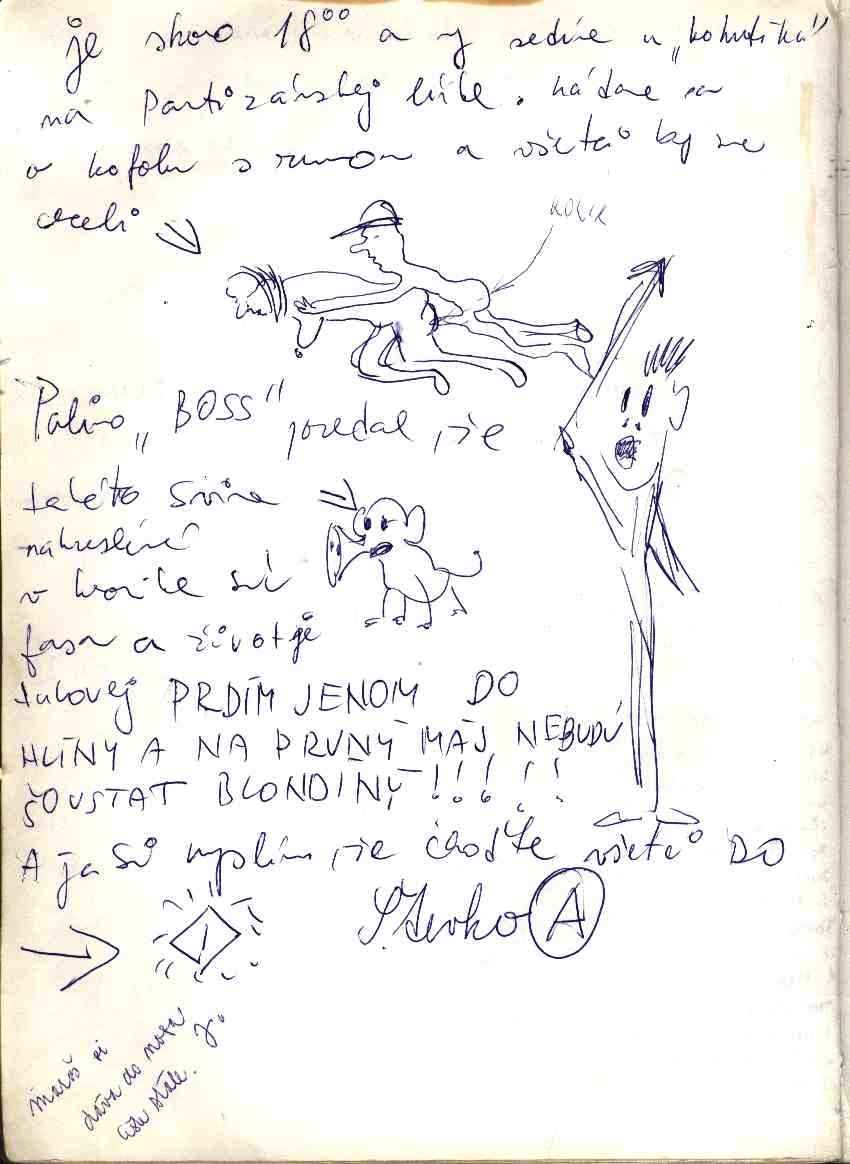 je skoro 18⁰⁰ a my sedíme u „kohútika"
na Partizánskej lúke. hádame sa
o kofolu s rumom a všetci by sme
chceli
Paľino „BOSS" povedal, že
takéto svine
nakreslené
v knížke sú
fasa a život je
PRDÍM JENOM DO
HLÍNY A NA PRVNÝ MÁJ NEBUDU
ŠOUSTAT BLONDÍNY!!!!!
A ja si myslím, že choďte všetci DO
Števko A
maroš si
dáva do nosa
ešte stále.